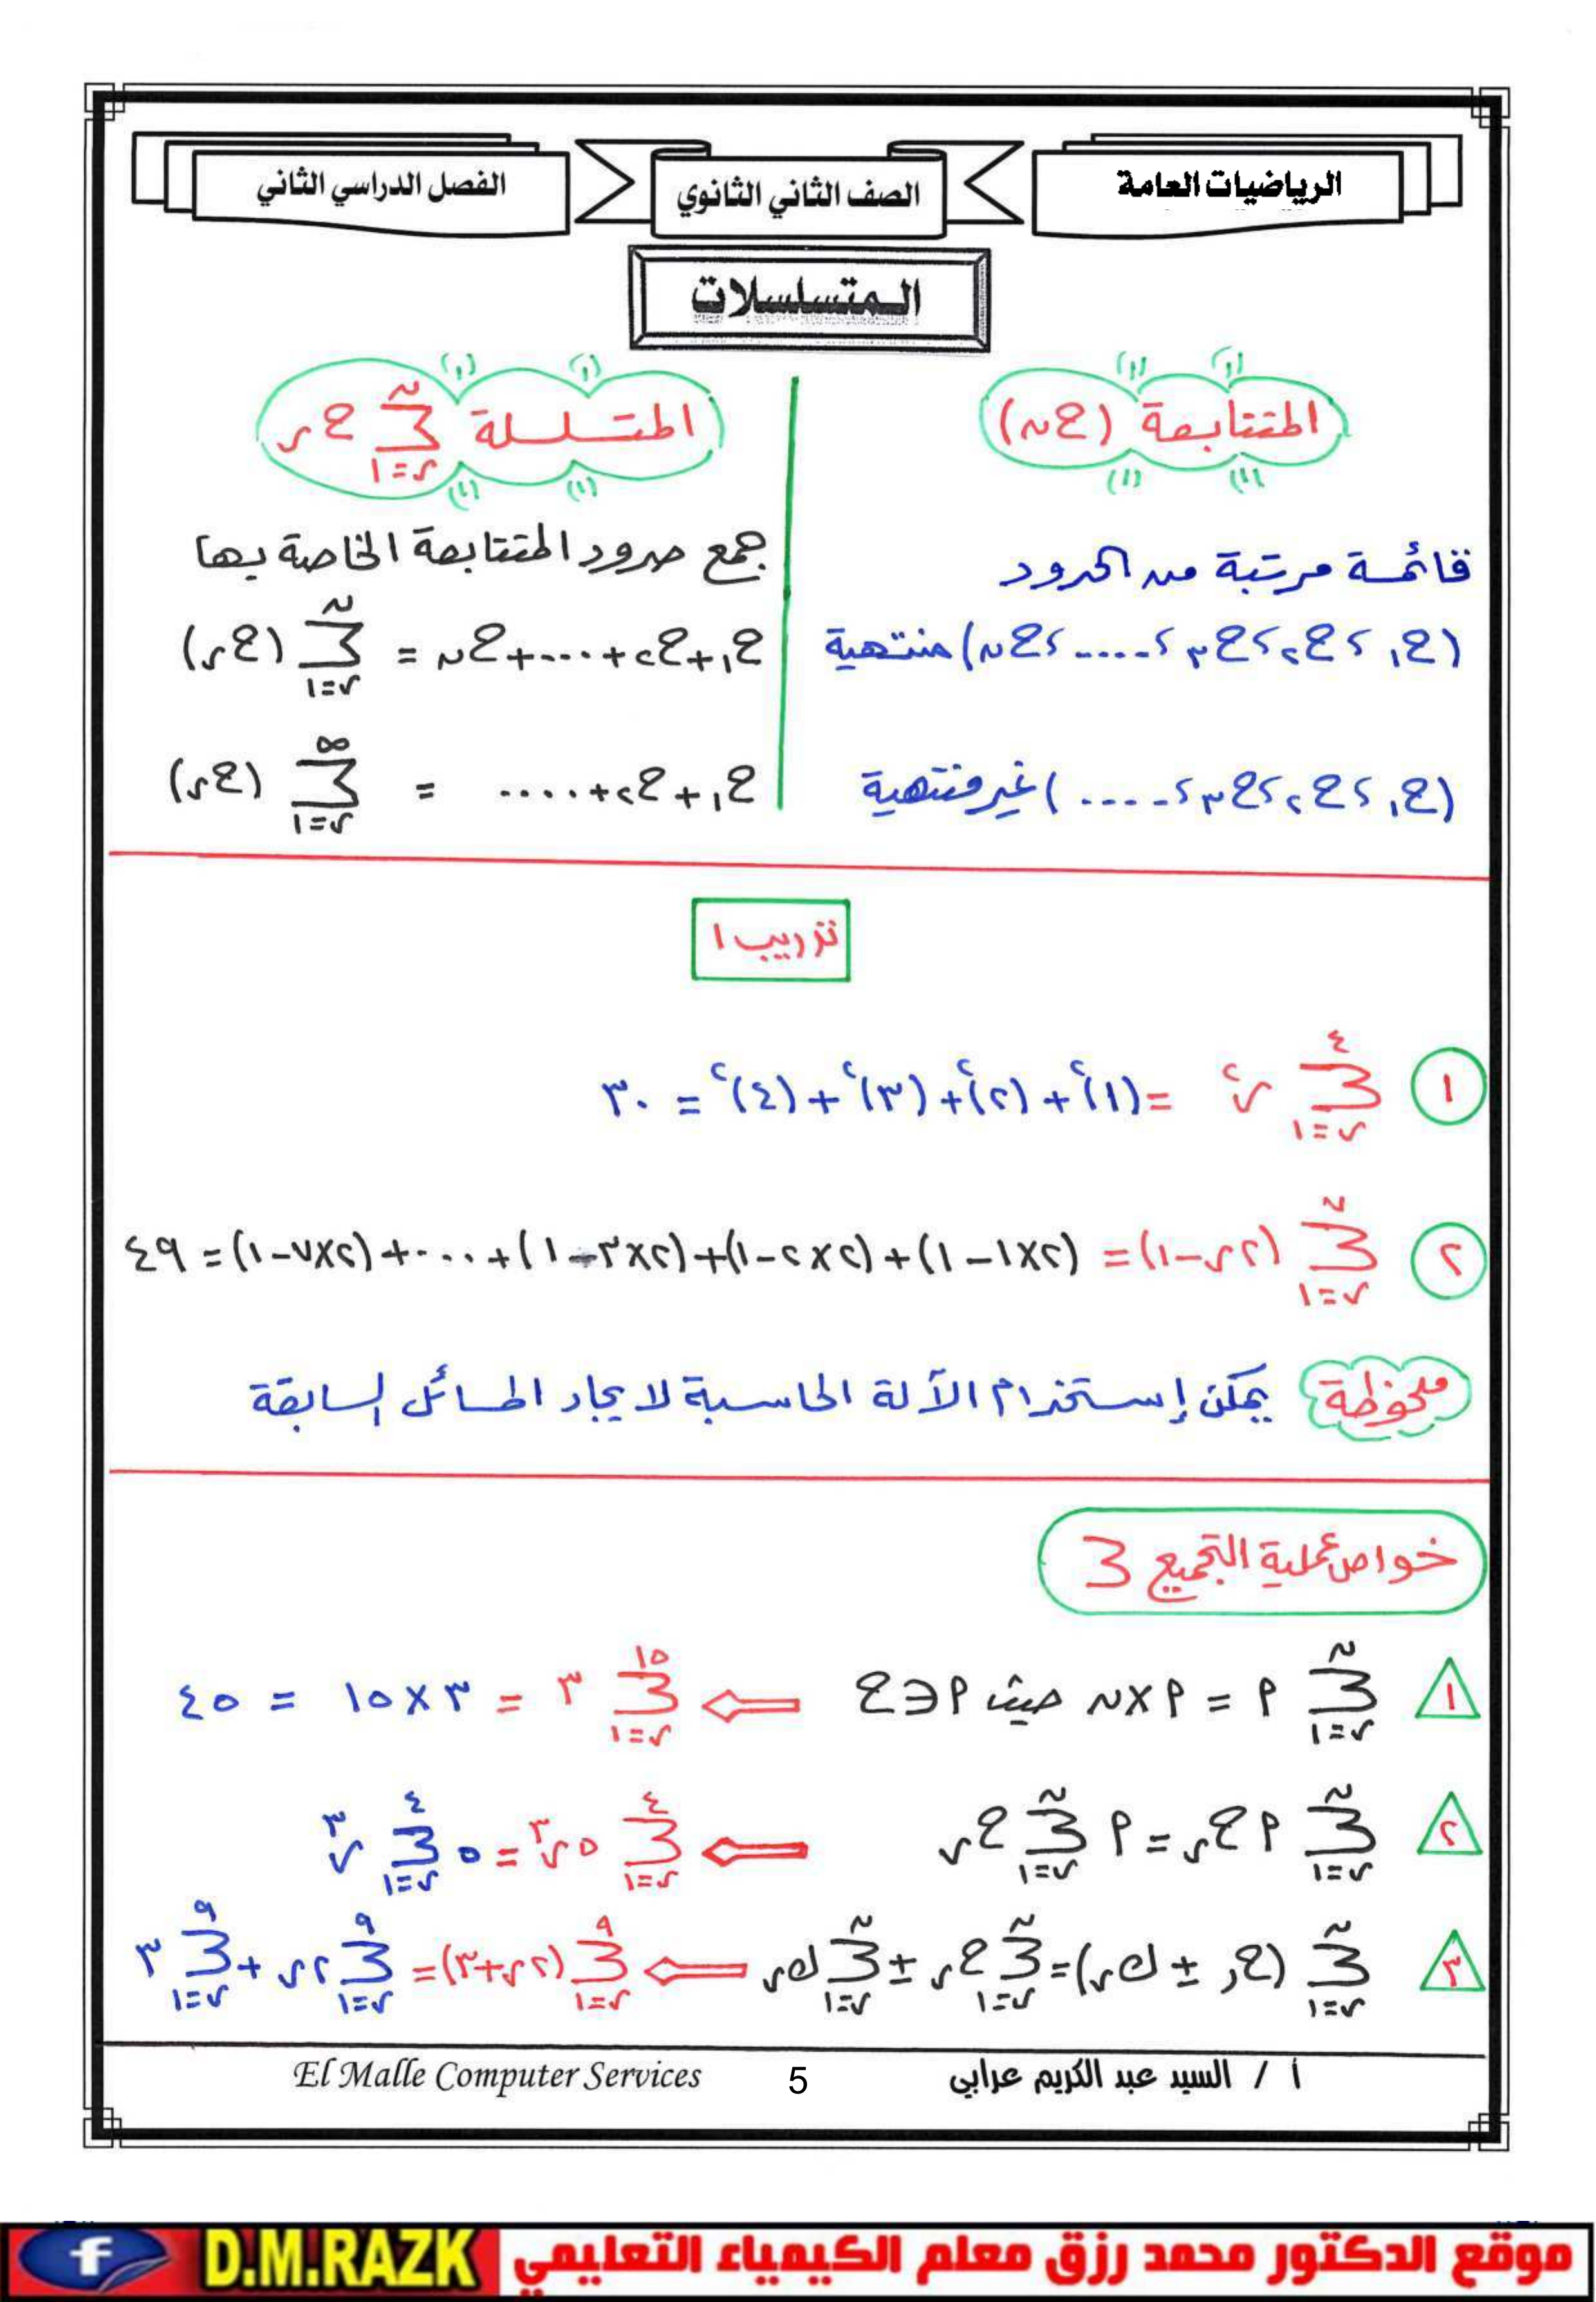 الرياضيات العامة
الصف الثاني الثانوي
الفصل الدراسي الثاني
المتسلسلات
المتتابعة (حن)
قائمة مرتبة من الحدود
(ح١ ، ح٢ ، ح٣ ، ..... ، حن) منتهية
(ح١ ، ح٢ ، ح٣ ، ..... ) غير منتهية
المتسلسلة ∑ن ر=١ حر
جمع حدود المتتابعة الخاصة بها
ح١ + ح٢ + .... + حن = ∑ن ر=١ (حر)
ح١ + ح٢ + ..... = ∑∞ ر=١ (حر)
تدريب ١
١ ∑٤ ر=١ ر٢ = (١)٢ + (٢)٢ + (٣)٢ + (٤)٢ = ٣٠
٢ ∑٧ ر=١ (٢ر-١) = (٢×١-١) + (٢×٢-١) + (٢×٣-١) + .... + (٢×٧-١) = ٤٩
ملحوظة يمكن إستخدام الآلة الحاسبة لايجاد المسائل السابقة
خواص عملية التجميع ∑
١ ∑ن ر=١ م = م×ن حيث م∈ح ⇐ ∑١٥ ر=١ ٣ = ٣×١٥ = ٤٥
٢ ∑ن ر=١ م حر = م ∑ن ر=١ حر ⇐ ∑٤ ر=١ ٥ر٣ = ٥ ∑٤ ر=١ ر٣
٣ ∑ن ر=١ (حر ± كر) = ∑ن ر=١ حر ± ∑ن ر=١ كر ⇐ ∑٩ ر=١ (٢ر+٣) = ∑٩ ر=١ ٢ر + ∑٩ ر=١ ٣
أ / السيد عبد الكريم عرابي
5
El Malle Computer Services
موقع الدكتور محمد رزق معلم الكيمياء التعليمي D.M.RAZK f